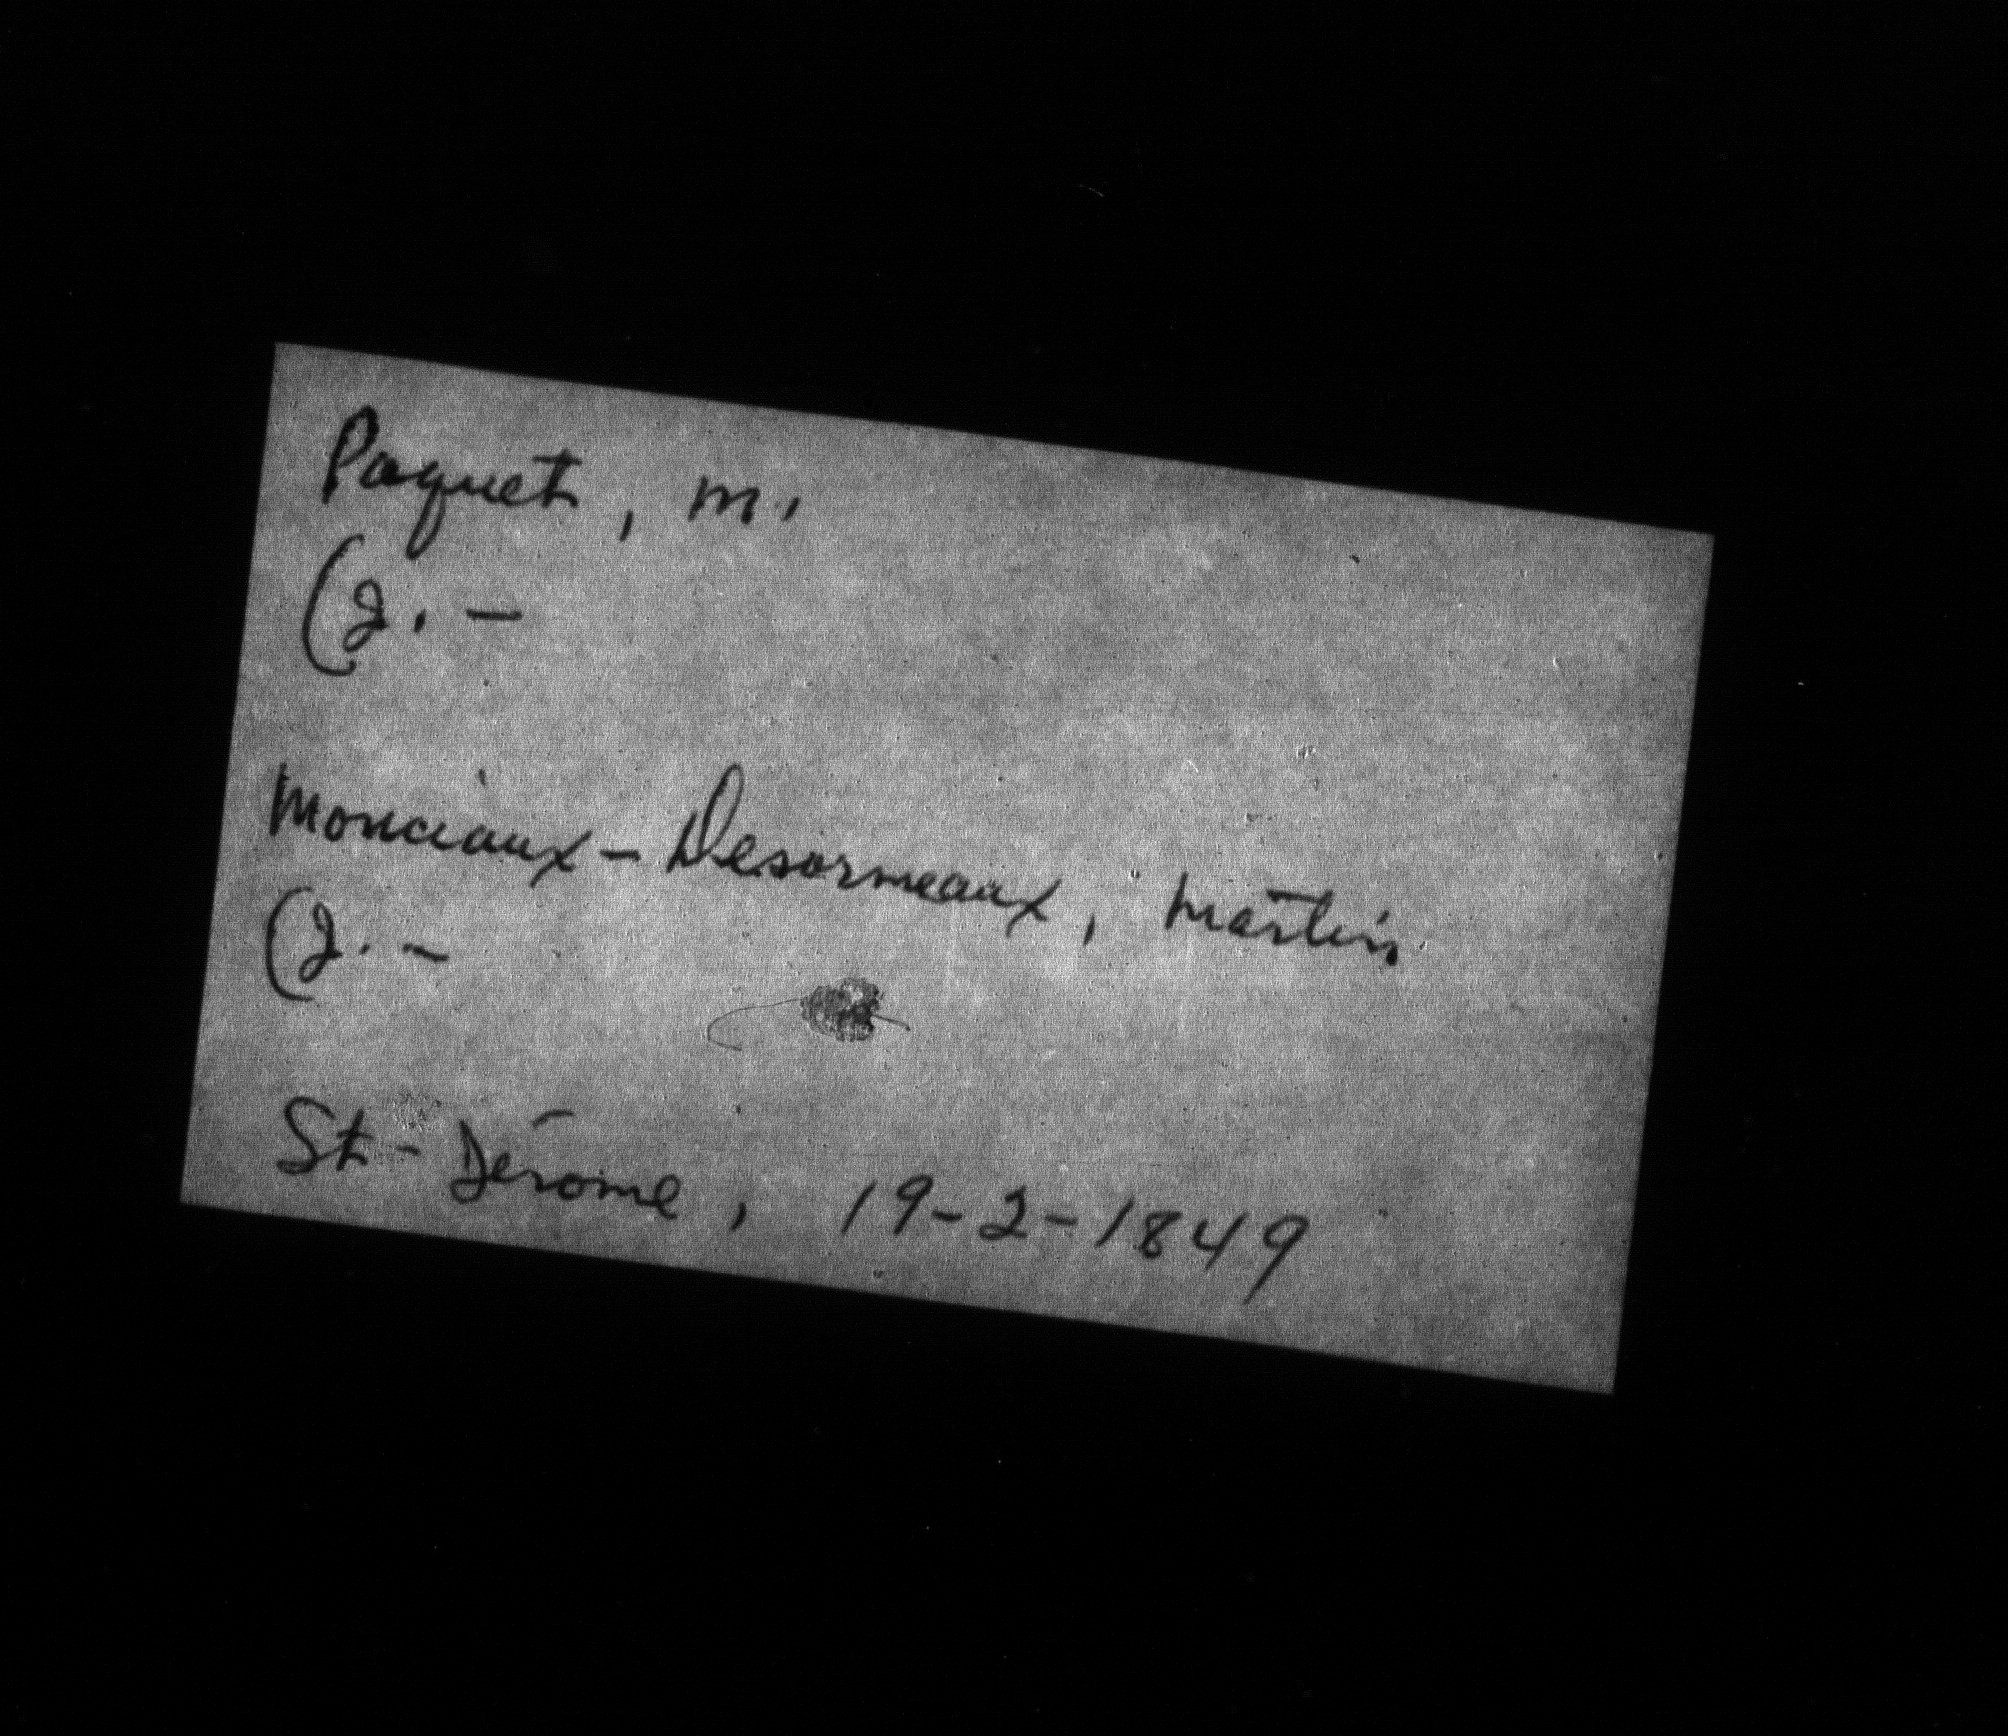 Paquet, m.
(2. -
Monciaux - Desormeaux, Martin
(2. -
St-Jérome, 19-2-1849